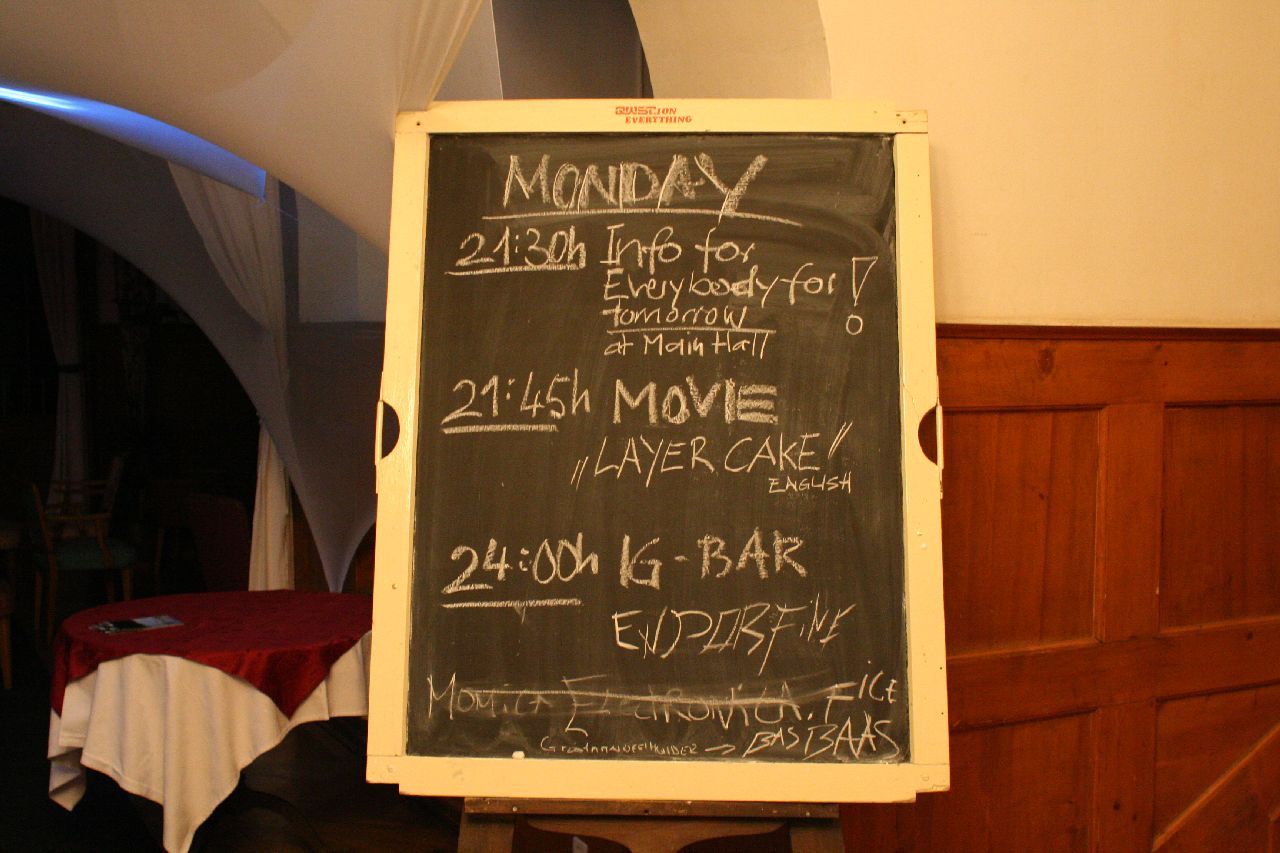 QUESTION
EVERYTHING
MONDAY
21:30h Info for
Everybody for !
tomorrow
at Main Hall
21:45h MOVIE
„LAYER CAKE"
ENGLISH
24:00h IG-BAR
ENDORFINE
FICE
BAS BAAS